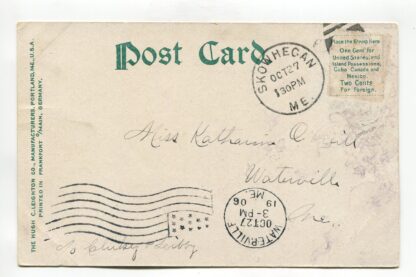 Post Card
SKOWHEGAN
OCT 27
130PM
ME.
Place the Stamp here
One Cent for
United States, and
Island Possessions,
Cuba Canada and
Mexico.
Two Cents
For Foreign.
Miss Katharine
Waterville
Me.
WATERVILLE
OCT 27
3-PM
19 06
ME.
THE HUGH C. LEIGHTON CO., MANUFACTURERS, PORTLAND, ME., U.S.A.
PRINTED IN FRANKFORT O/MAIN, GERMANY.